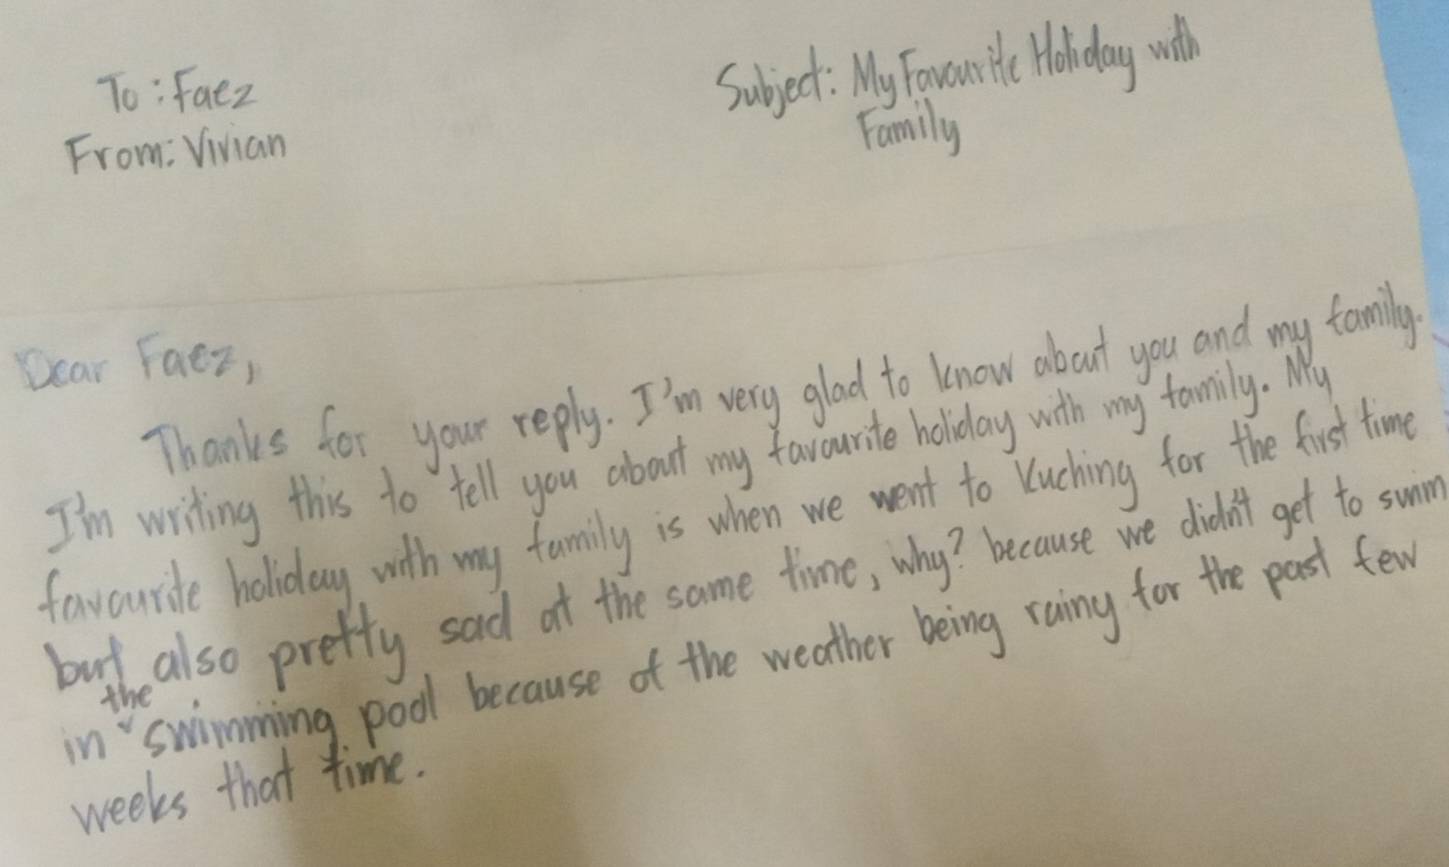 To: Faez
From: Vivian
Subject: My Favourite Holiday with
Family
Dear Faez,
Thanks for your reply. I'm very glad to know about you and my family.
I'm writing this to tell you about my favourite holiday with my family. My
favourite holiday with my family is when we went to Kuching for the first time
but also pretty sad at the same time, why? because we didn't get to swim
in the swimming pool because of the weather being rainy for the past few
weeks that time.